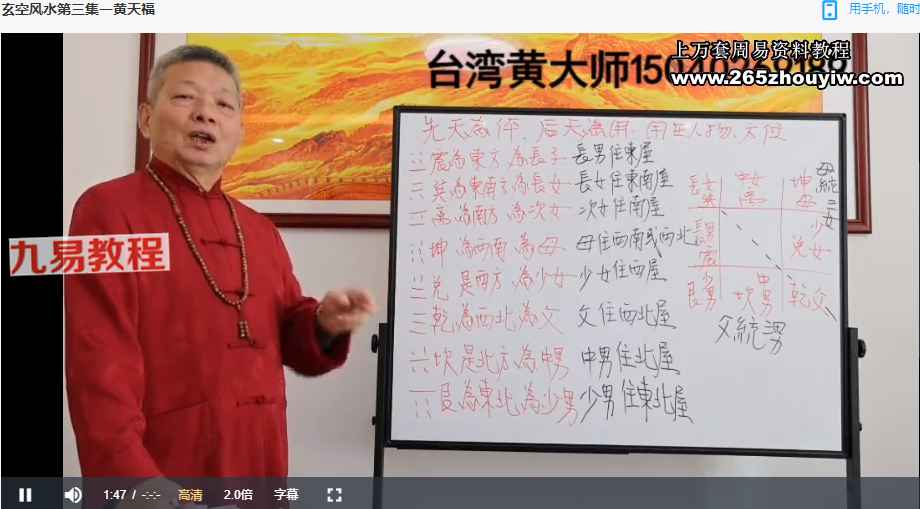 玄空风水第三集—黄天福
用手机，随时
上万套周易资料教程
www.265zhouyiw.com
台湾黄大师15040269189
九易教程
先天為体、后天為用、用在人物、方位
☳震為東方為長子 長男住東屋
☴巽為東南方為長女 長女住東南屋
☲離為南方為次女 次女住南屋
☷坤為西南為母 母住西南或西北
☱兌是西方為少女 少女住西屋
☰乾為西北為父 父住西北屋
☵坎是北方為中男 中男住北屋
☶艮為東北為少男 少男住東北屋
長女 巽
中女 離
坤 母
母統三女
長男 震
少女 兌
少男 艮
中男 坎
乾父
父統三男
1:47 / -:-:-
高清
2.0倍
字幕